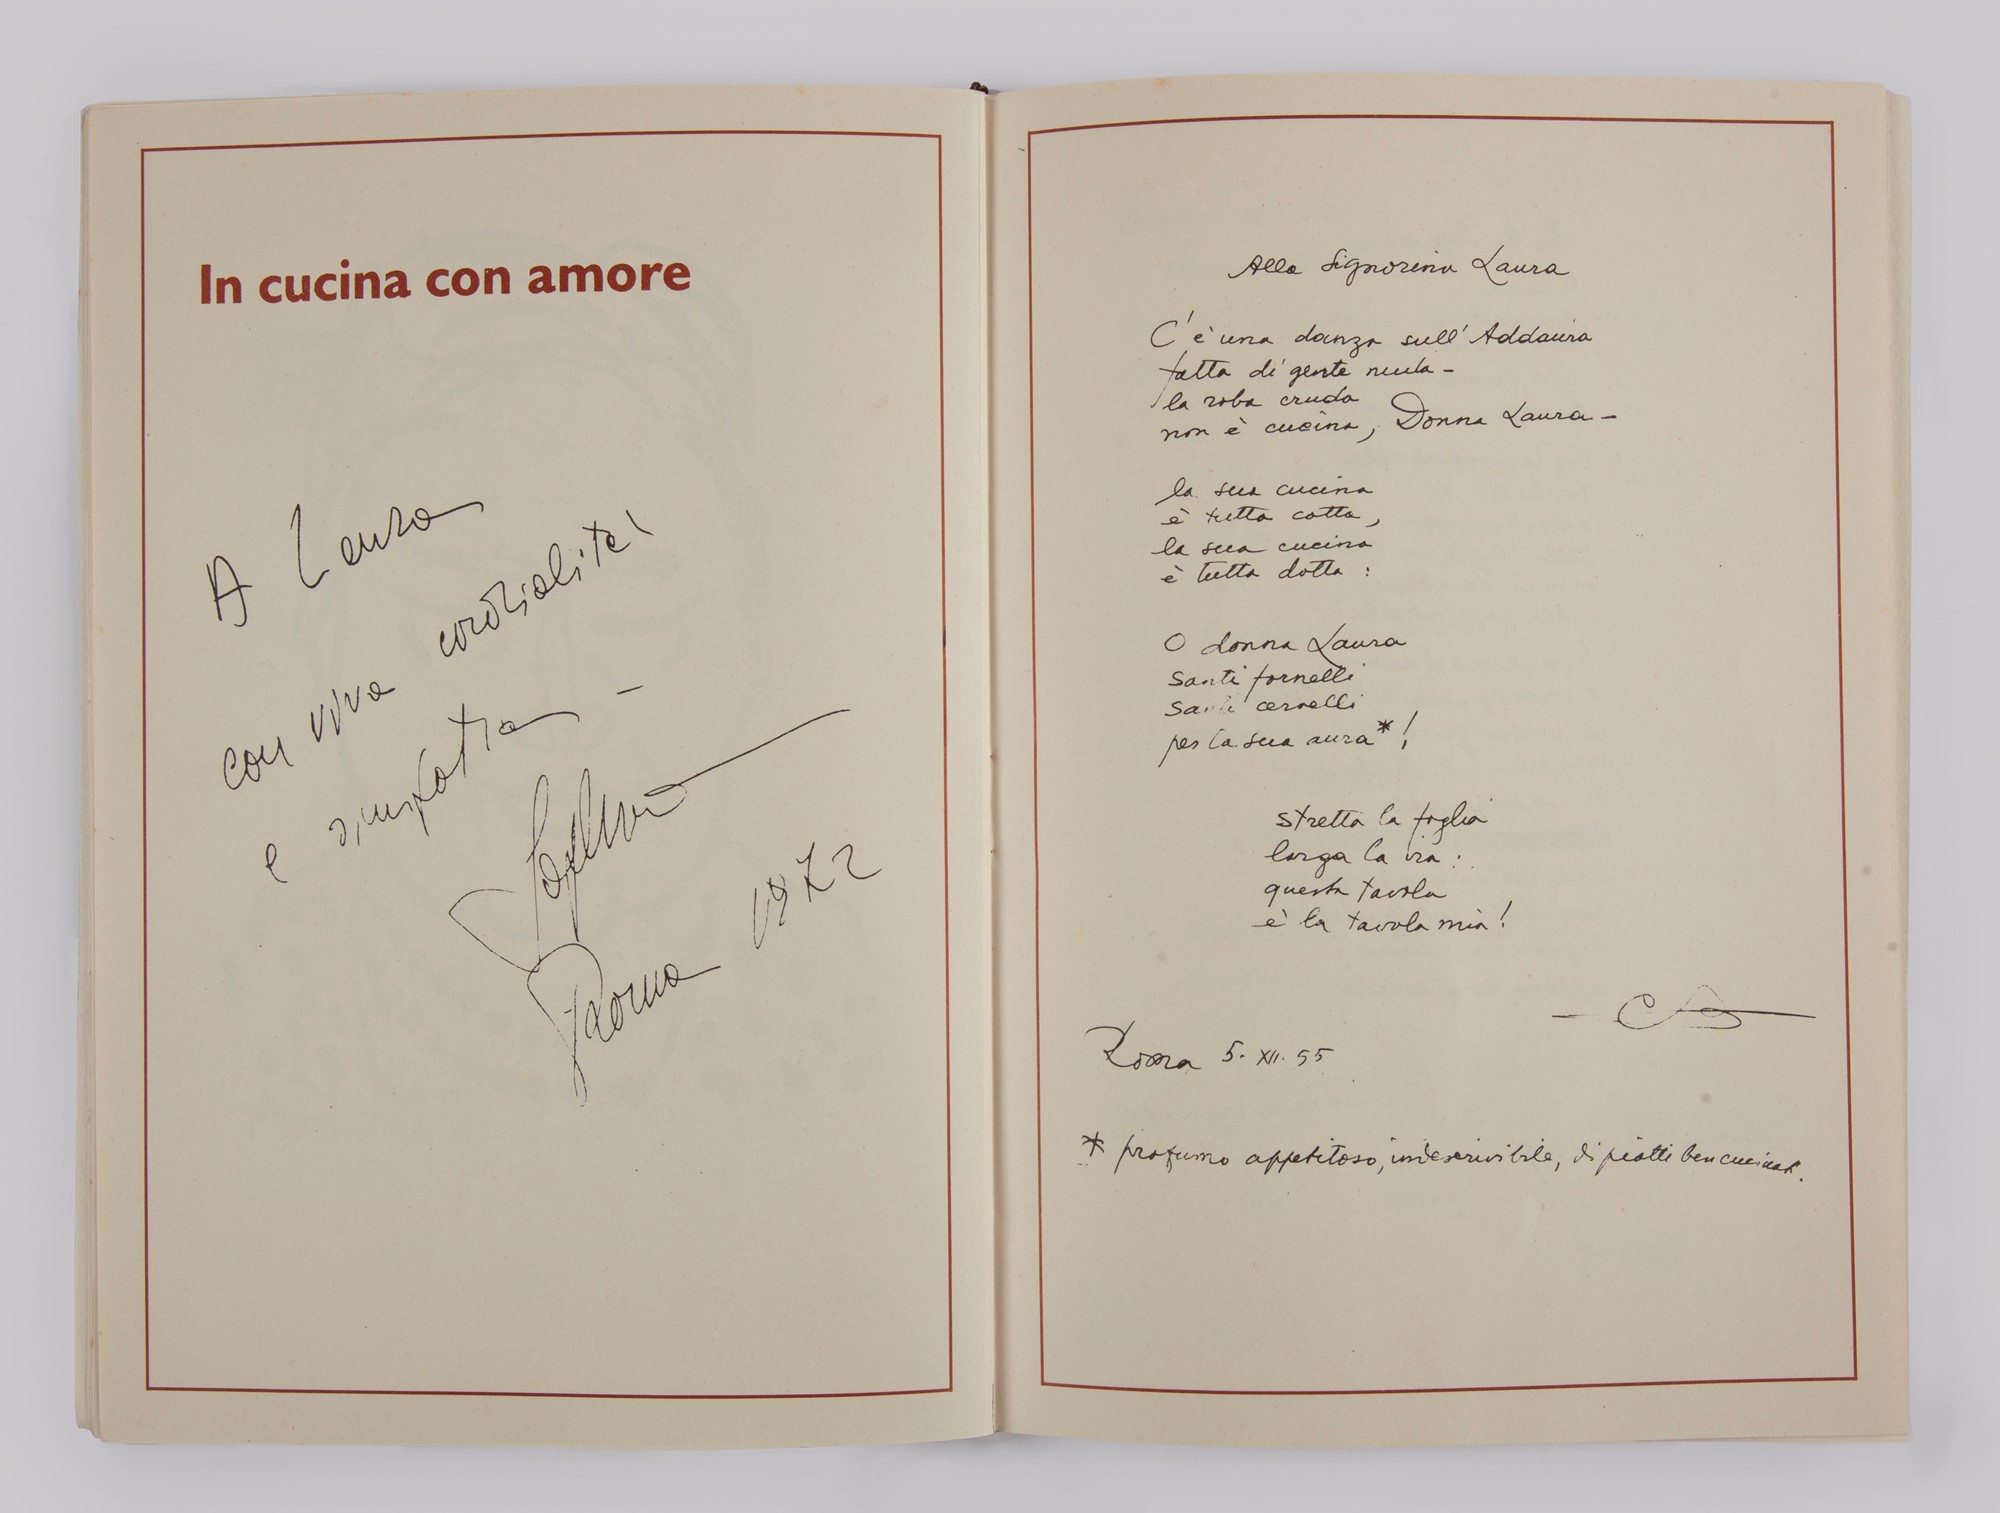 In cucina con amore
A Laura
con viva cordialità
e simpatia –
Roma 1972
Alla Signorina Laura
C'è una danza sull'Addaura
fatta di gente nuda –
la roba cruda
non è cucina, Donna Laura –
la sua cucina
è tutta cotta,
la sua cucina
è tutta dotta:
O donna Laura
Santi fornelli
Santi cervelli
per la sua aura*!
stretta la foglia
larga la via:
questa tavola
è la tavola mia!
Roma 5. XII. 55
* profumo appetitoso, indescrivibile, di piatti ben cucinati.